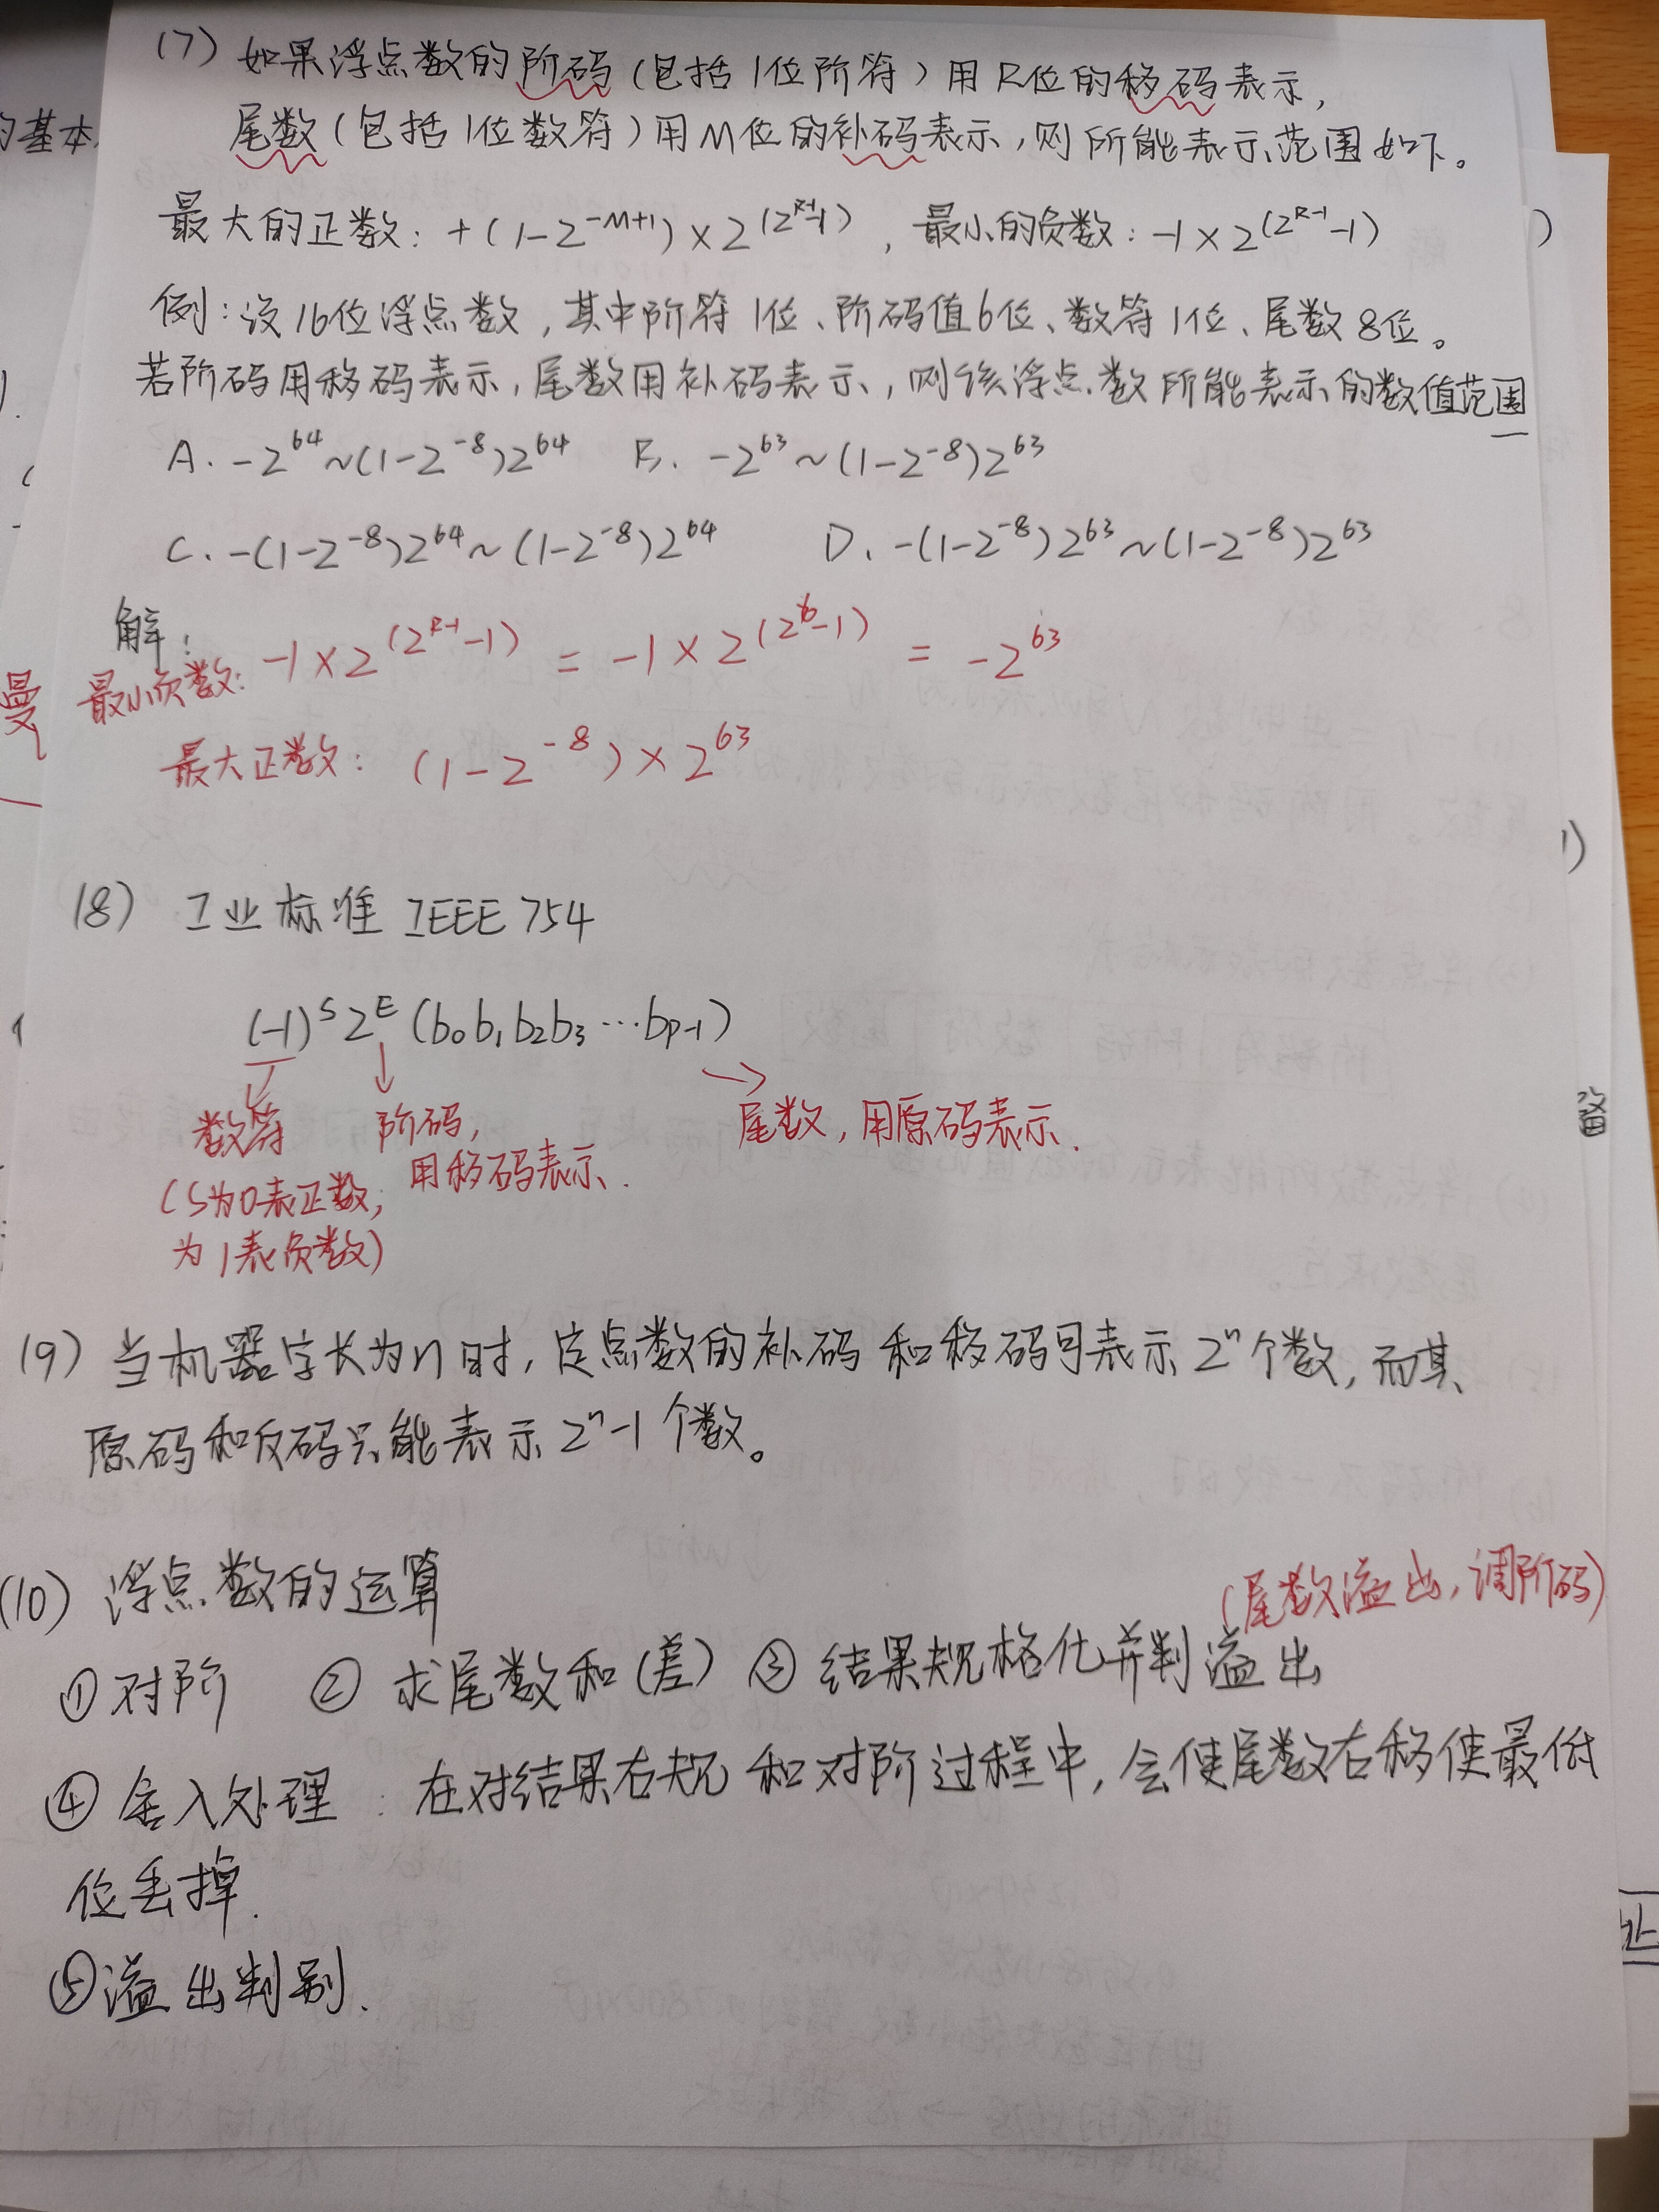 (7) 如果浮点数的阶码(包括1位阶符)用R位的移码表示,
尾数(包括1位数符)用M位的补码表示,则所能表示范围如下。
最大的正数: +(1-2^{-M+1})×2^{(2^{R-1}-1)}, 最小的负数: -1×2^{(2^{R-1}-1)}
例:设16位浮点数,其中阶符1位、阶码值6位、数符1位、尾数8位。
若阶码用移码表示,尾数用补码表示,则该浮点数所能表示的数值范围
A. -2^{64}~(1-2^{-8})2^{64} B. -2^{63}~(1-2^{-8})2^{63}
C. -(1-2^{-8})2^{64}~(1-2^{-8})2^{64} D. -(1-2^{-8})2^{63}~(1-2^{-8})2^{63}
解:
最小负数: -1×2^{(2^{R-1}-1)} = -1×2^{(2^6-1)} = -2^{63}
最大正数: (1-2^{-8})×2^{63}
(8) 工业标准 IEEE 754
(-1)^S 2^E (b_0b_1b_2b_3…b_{p-1})
数符 阶码, 尾数,用原码表示.
用移码表示.
(S为0表正数;
为1表负数)
(9) 当机器字长为n时,定点数的补码和移码可表示2^n个数,而其
原码和反码只能表示2^n-1个数。
(10) 浮点数的运算
(尾数溢出,调阶码)
①对阶 ② 求尾数和(差) ③ 结果规格化并判溢出
④ 舍入处理:在对结果右规和对阶过程中,会使尾数右移使最低
位丢掉.
⑤溢出判别.
的基本
曼
备
址